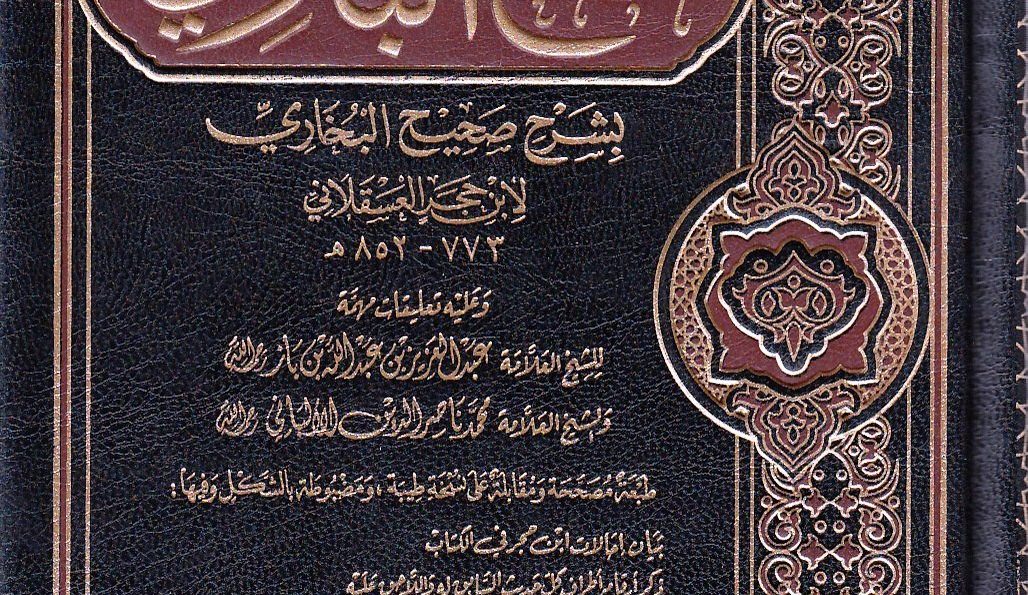 فتح الباري
بِشَرْح صَحِيح البُخَارِيّ
لِابْن حَجَر العَسْقَلَاني
٧٧٣ - ٨٥٢ هـ
وَعَلَيْه تعليقات مهمَّة
للشيخ العَلَّامَة عبد العزيز بن عبد الله بن باز رحمه الله
وللشيخ العَلَّامَة محمد ناصر الدين الألباني رحمه الله
طبعَةٌ مُصَحَّحَة وَمُقَابلَة عَلَى نُسْخَةٍ طيبَة ، وَمَضْبُوطَة بالشَّكْل وَفيهَا :
بَيَان إحَالات ابْن حجر في الكتَاب
ذكر أرقام أطراف كل حديث السَّابق أو اللاحق عَلَيْه